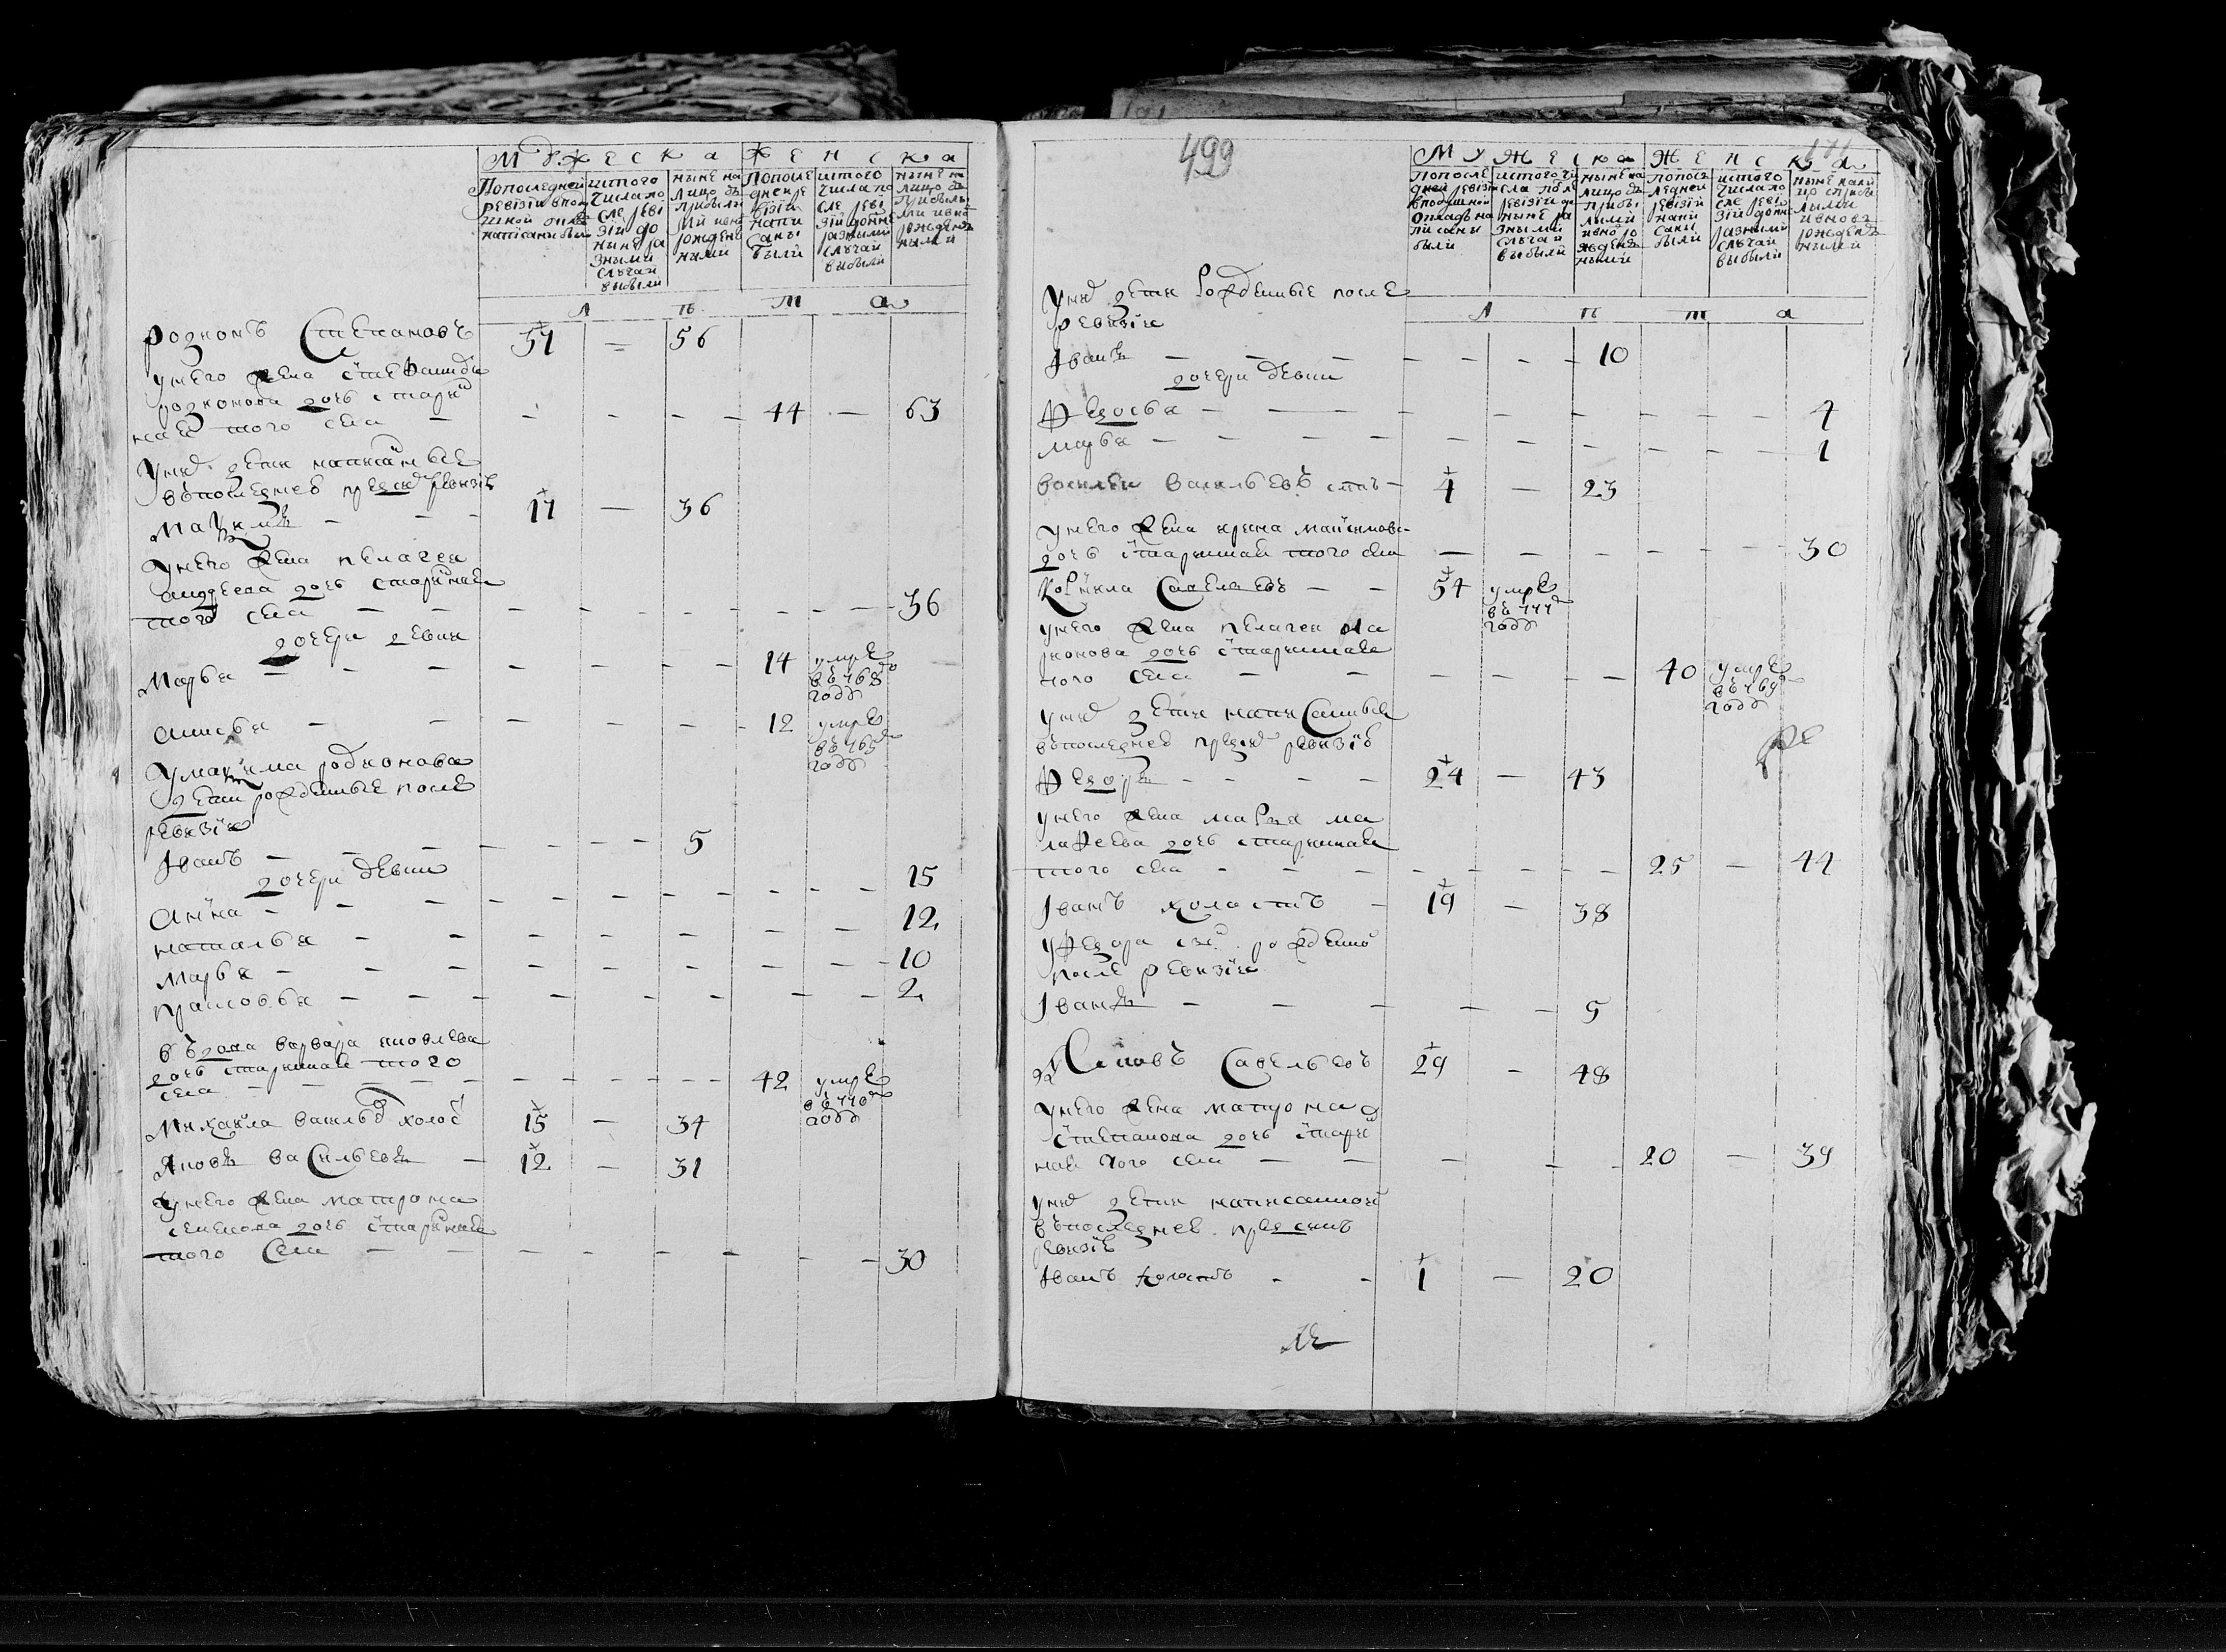 Мужеска Женска
Попоследней ревизии вподушной окладъ написаны были
истого числа после ревизии доныне разными случаи выбыли
ныне налицо съ прибылыми ивновь рожденными
Попоследней ревизии написаны были
истого числа после ревизии доныне разными случаи выбыли
ныне налицо съ прибылыми ивновь рожденными
Л ѣ т а
Родионъ Степановъ 37 — 56
унего жена Степанида
родионова дочь стари
ная того села — — — — — 44 — 63
Уних дети написанные
въпоследней пред сею ревизіи
Ма[кси]мъ — — — 17 — 36
Унего жена пелагея
андреева дочь старинная
того села — — — — — — — — 36
дочери девки
Марья — — — — — — 14 умре въ 768 году
анисья — — — — — — 12 умре въ 765 году
Умаксима родионова
дети рожденные после
ревизіи
Іванъ — — — — — — 5
дочери девки
15
Анна — — — — — — — —
12
наталья — — — — — — — —
марья — — — — — — — — 10
прасковья — — — — — — — 2
въдова варвара яковлева
дочь старинная того
села — — — — — — — 42 умре въ 770 году
Михаила васильев холос 15 — 34
Яковъ васильевъ — 12 — 31
Унего жена матрона
семенова дочь старинная
того села — — — — — — — 30
499
Мужеска Женска
Попоследней ревизии вподушной окладъ написаны были
истого числа после ревизии доныне разными случаи выбыли
ныне налицо съ прибылыми ивново рожденными
попоследней ревизии написаны были
истого числа после ревизии доныне разными случаи выбыли
ныне налицо съ прибылыми ивновь рожденными
Л ѣ т а
Уних дети рожденные после
ревизіи
Іванъ — — — — — — 10
дочери девки
Федосья — — — — — — — — 4
марья — — — — — — — — 1
василеи васильевъ — 4 — 23
унего жена ирина
дочь старинная того села — — — — — — 30
Корнила Савельевъ — — 54 умре въ 777 году
унего жена пелагея
дочь старинная
того села — — — — — — 40 умре въ 769 году
уних дети написанные
въпоследней пред сею ревизіи
Федоръ — — — — 24 — 43
унего жена
дочь старинная
того села — — — — — — 25 — 44
Іванъ холостъ — 19 — 38
уФедора сынъ рожденной
после ревизіи
Іванъ — — — — — 5
Савельевъ 29 — 48
унего жена матрона
степанова дочь стари
ная того села — — — — — 20 — 39
уних дети написанной
въпоследней пред сею
ревизіи
Іванъ холостъ — — 1 — 20